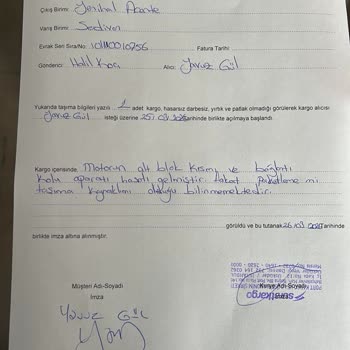 Çıkış Birimi: Yenibal Acente
Varış Birimi:
Evrak Seri Sıra/No: Fatura Tarihi
Gönderici: Halil Koç Alıcı: Yavuz Gül
Yukarıda taşıma bilgileri yazılı 1 adet kargo, hasarsız darbesiz, yırtık ve patlak olmadığı görülerek kargo alıcısı
Yavuz Gül isteği üzerine 25/ tarihinde birlikte açılmaya başlandı.
Kargo içerisinde, Motorun alt blok kısmı ve bağlantı
kolu aparatı hasarlı gelmiştir. fakat paketleme mi
taşıma kaynaklımı olduğu bilinmemektedir.
görüldü ve bu tutanak 26 tarihinde
birlikte imza altına alınmıştır.
Müşteri Adı-Soyadı
İmza
Kurye Adı-Soyadı
İmza
Yavuz GÜL
suratkargo